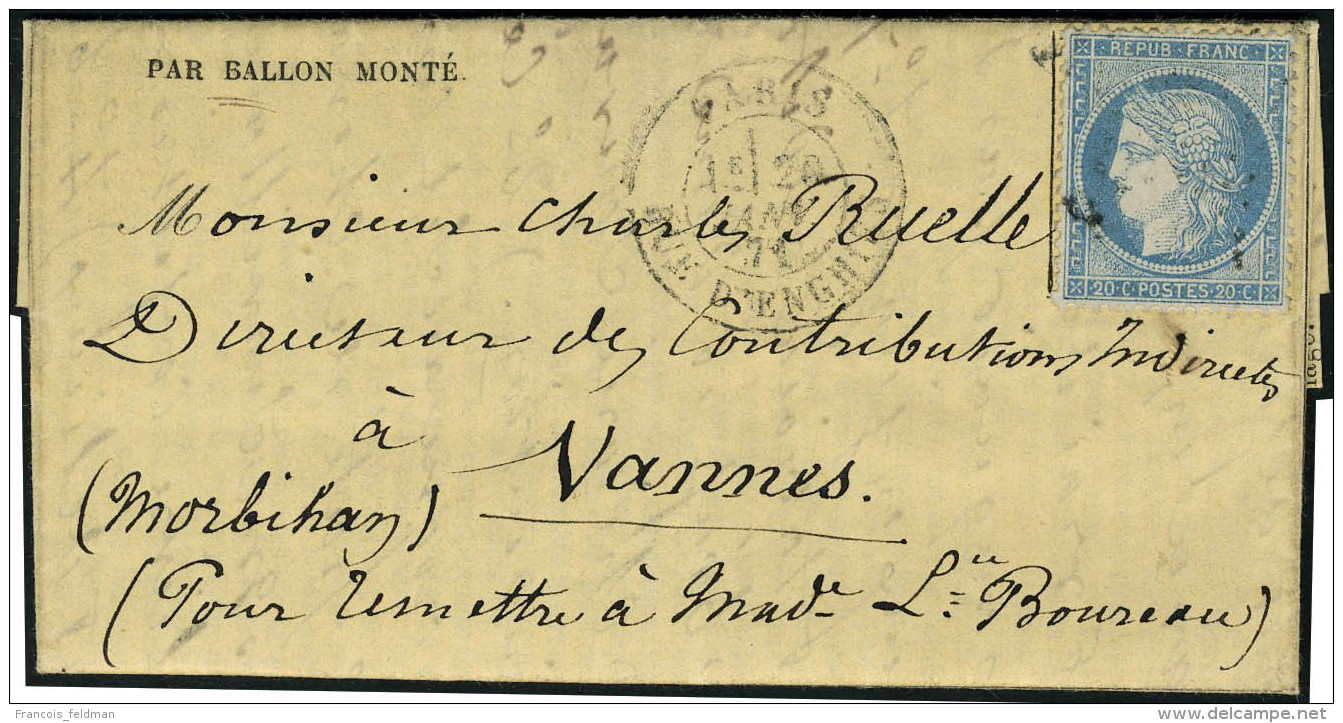 PAR BALLON MONTÉ.
PARIS
1E 20
JANV
71
RUE D'ENGHIEN
REPUB FRANC
20·C·POSTES·20·C·
Monsieur Charles Ruelle
Directeur des Contributions Indirectes
à
Vannes.
(Morbihan)
(Pour remettre à Made Lse Boureau)
Francois_feldman
www.delcampe.net